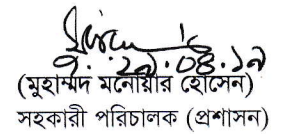 ২৯.০৪.১৯
(মুহাম্মদ মনোয়ার হোসেন)
সহকারী পরিচালক (প্রশাসন)